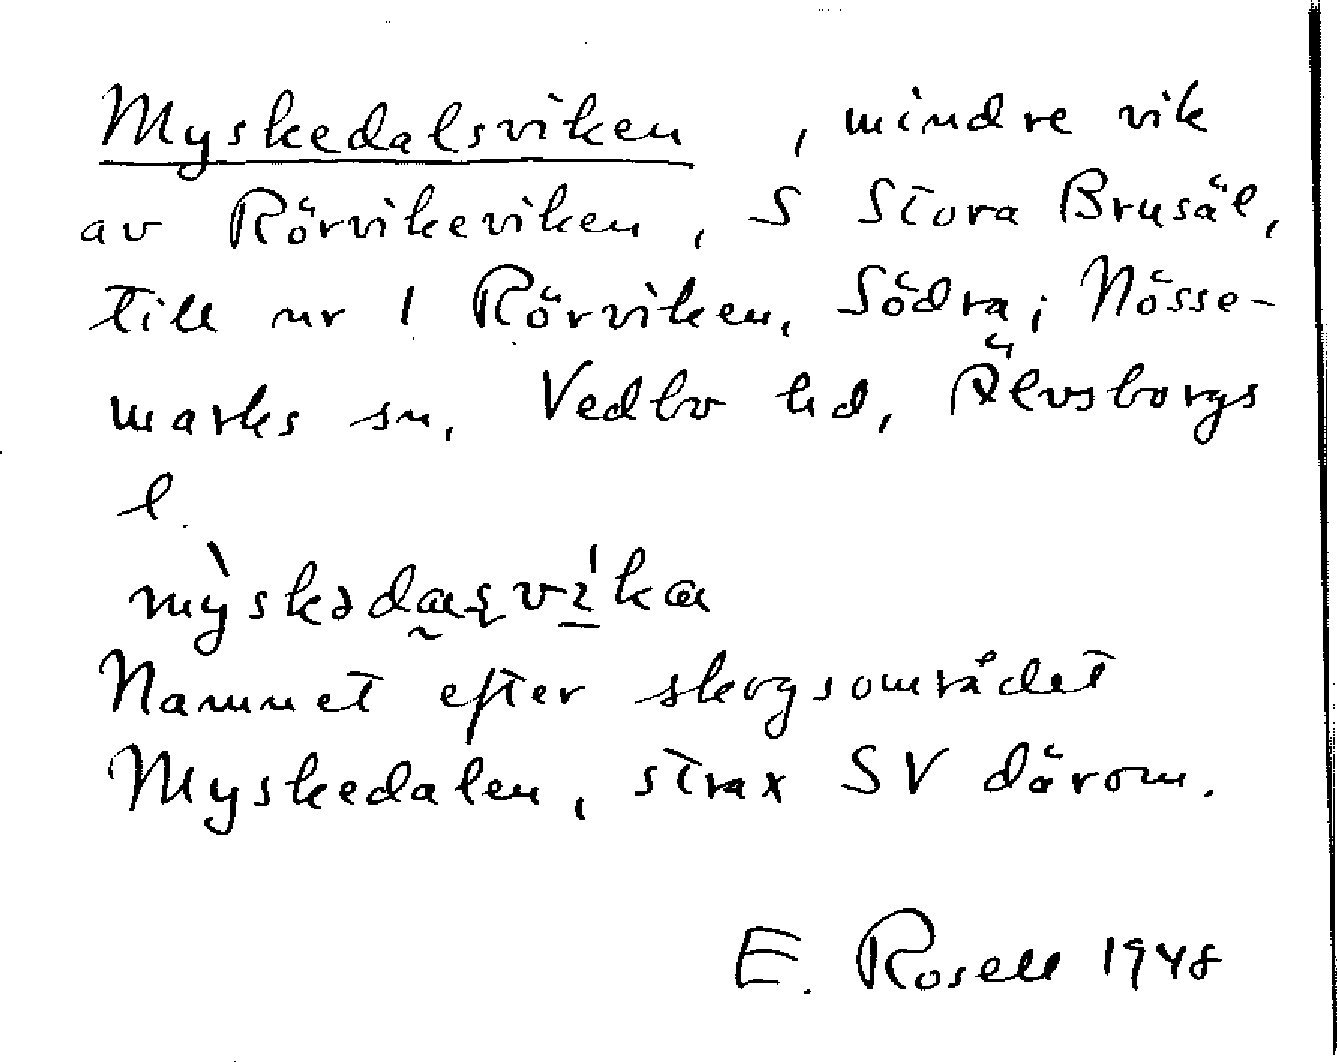 Myskedalsviken, mindre vik
av Rörvikeviken, S Stora Brusäl,
till nr 1 Rörviken, Södra; Nösse-
marks sn, Vedbo hd, Älvsborgs
l.
Namnet efter skogsområdet
Myskedalen, strax SV därom.
E. Rosell 1948